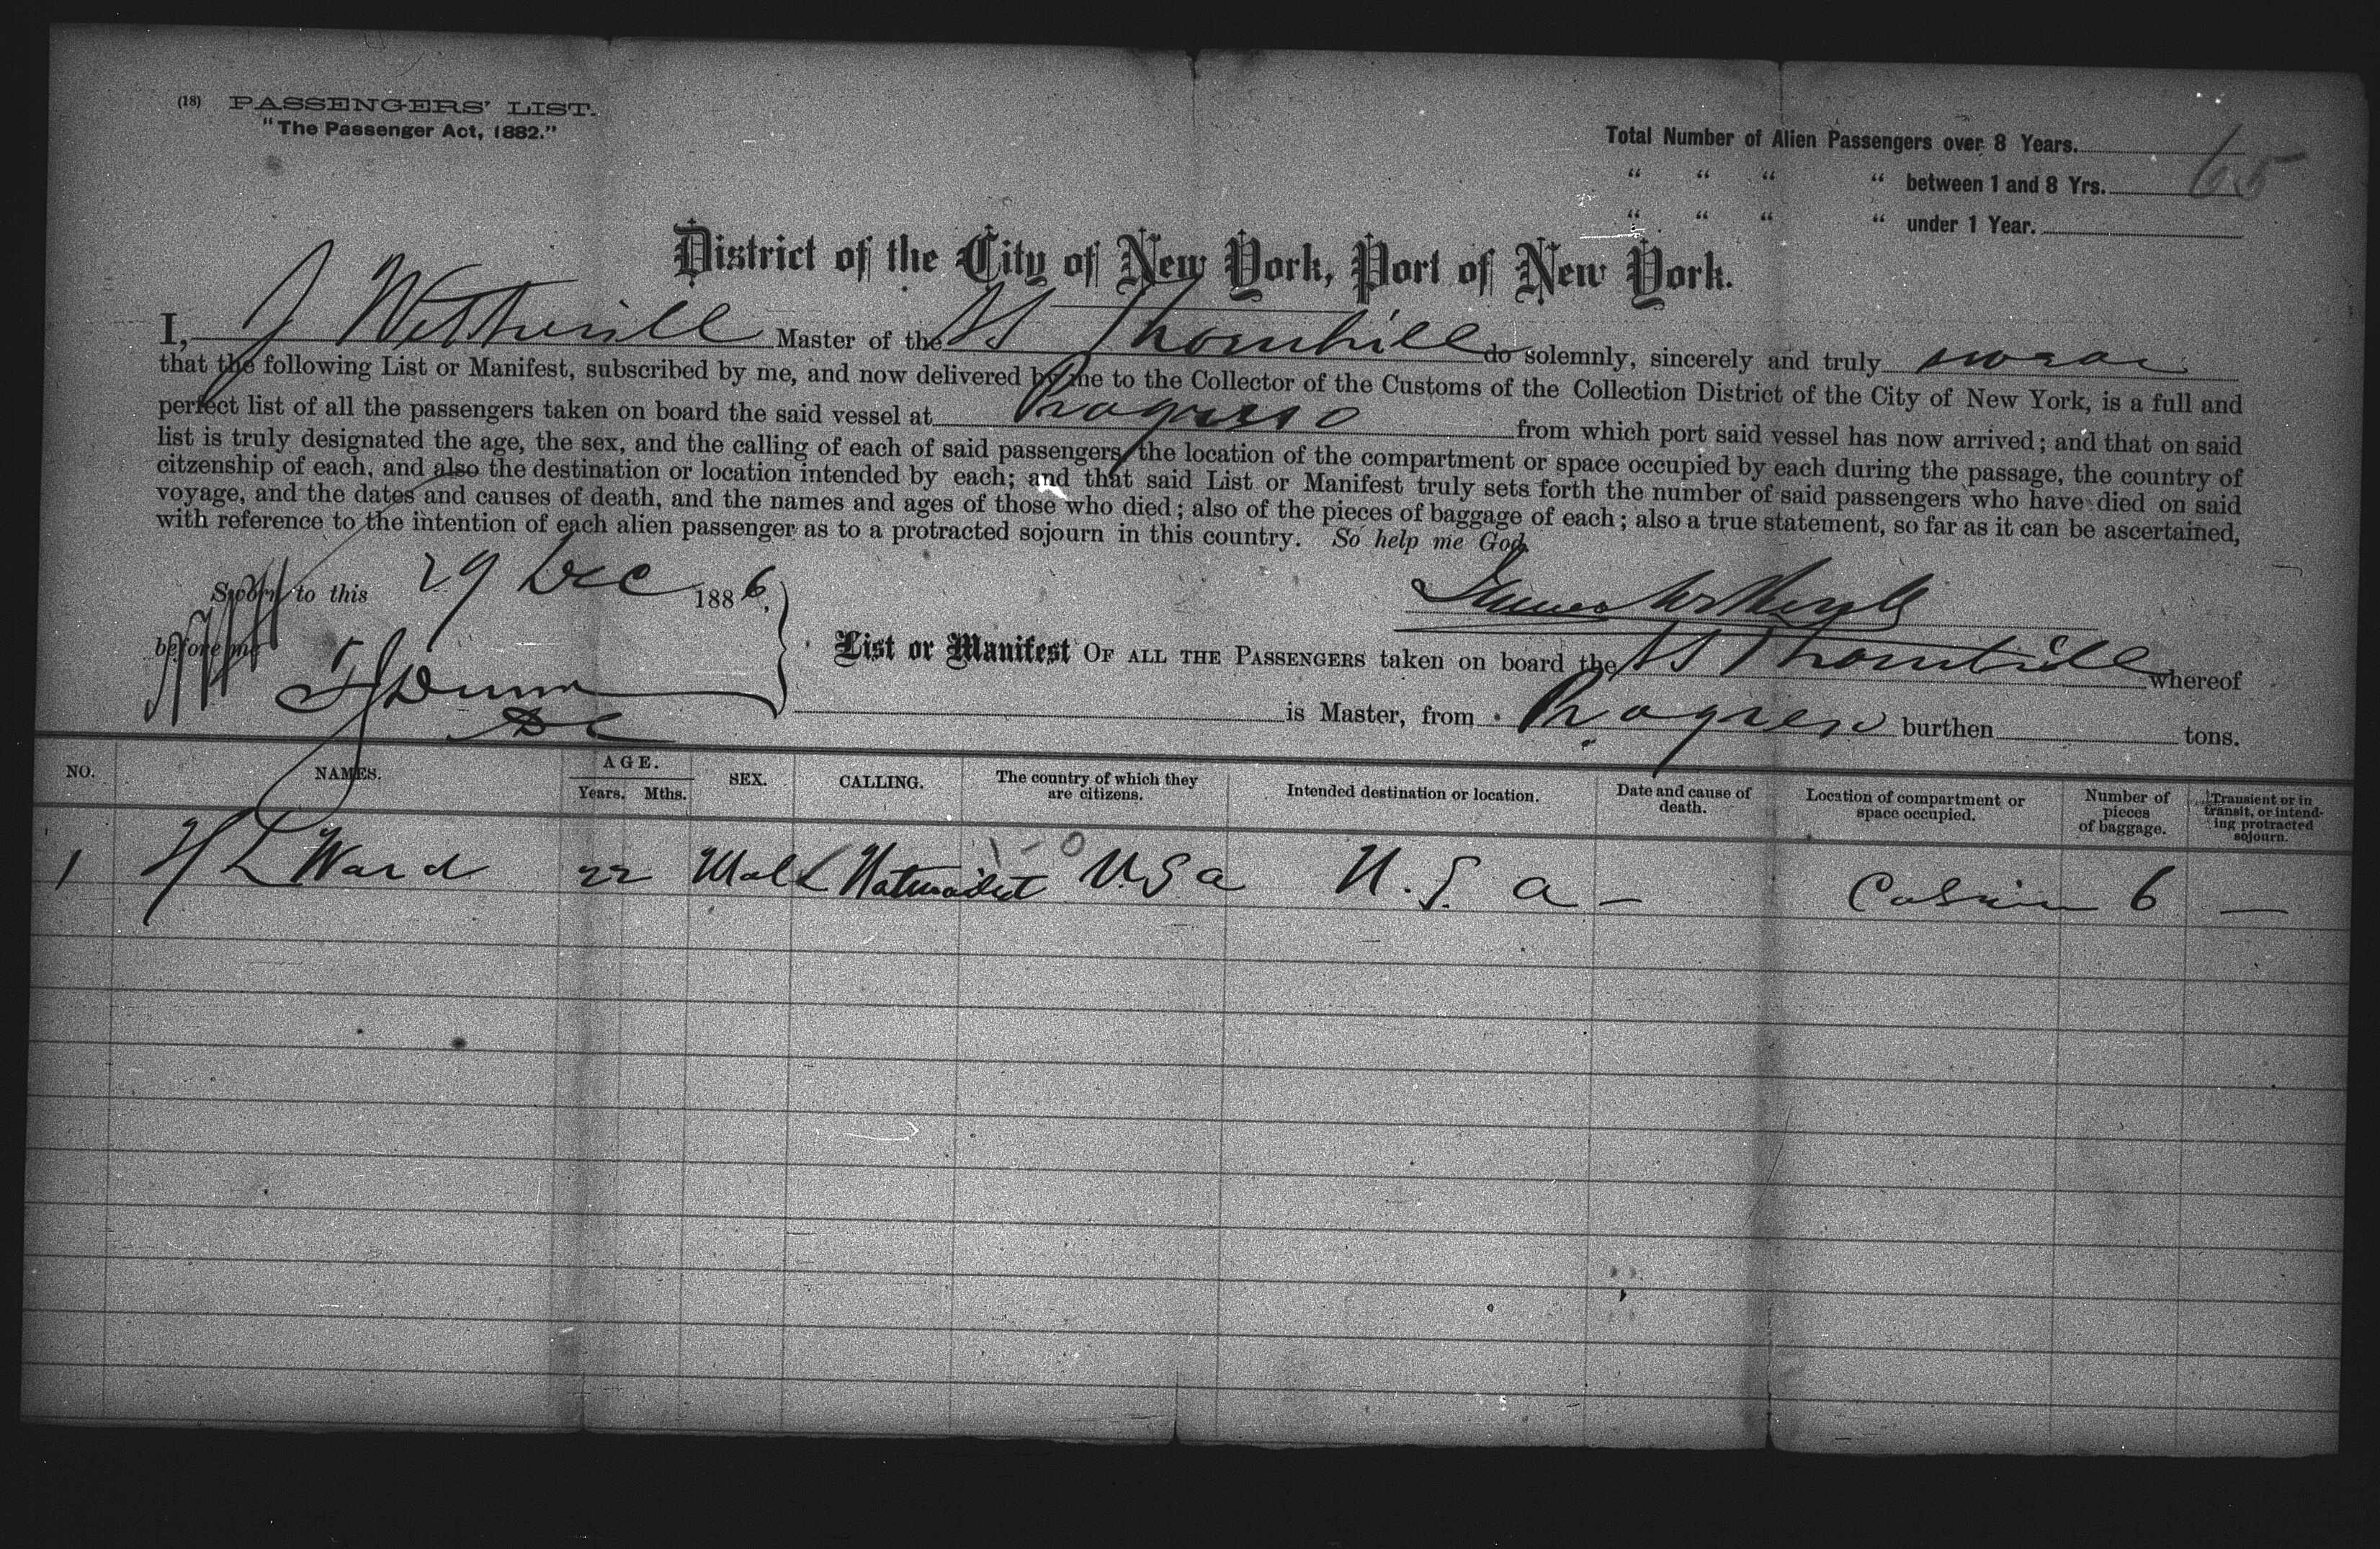 (18) PASSENGERS' LIST.
"The Passenger Act, 1882."
Total Number of Alien Passengers over 8 Years.
" " " " between 1 and 8 Yrs.
" " " " under 1 Year.
65
District of the City of New York, Port of New York.
I, J Wetherill Master of the SS Thornhill do solemnly, sincerely and truly swear
that the following List or Manifest, subscribed by me, and now delivered by me to the Collector of the Customs of the Collection District of the City of New York, is a full and
perfect list of all the passengers taken on board the said vessel at Progreso from which port said vessel has now arrived; and that on said
list is truly designated the age, the sex, and the calling of each of said passengers, the location of the compartment or space occupied by each during the passage, the country of
citzenship of each, and also the destination or location intended by each; and that said List or Manifest truly sets forth the number of said passengers who have died on said
voyage, and the dates and causes of death, and the names and ages of those who died; also of the pieces of baggage of each; also a true statement, so far as it can be ascertained,
with reference to the intention of each alien passenger as to a protracted sojourn in this country. So help me God.
Sworn to this 29 Dec 1886,
before me
James Wetherill
List or Manifest OF ALL THE PASSENGERS taken on board the SS Thornhill whereof
is Master, from Progreso burthen tons.
NO. NAMES. AGE. Years. Mths. SEX. CALLING. The country of which they are citizens. Intended destination or location. Date and cause of death. Location of compartment or space occupied. Number of pieces of baggage. Transient or in transit, or intending protracted sojourn.
1 H L Ward 22 Male Naturalist U.S a U.S. a — Cabin 6 —